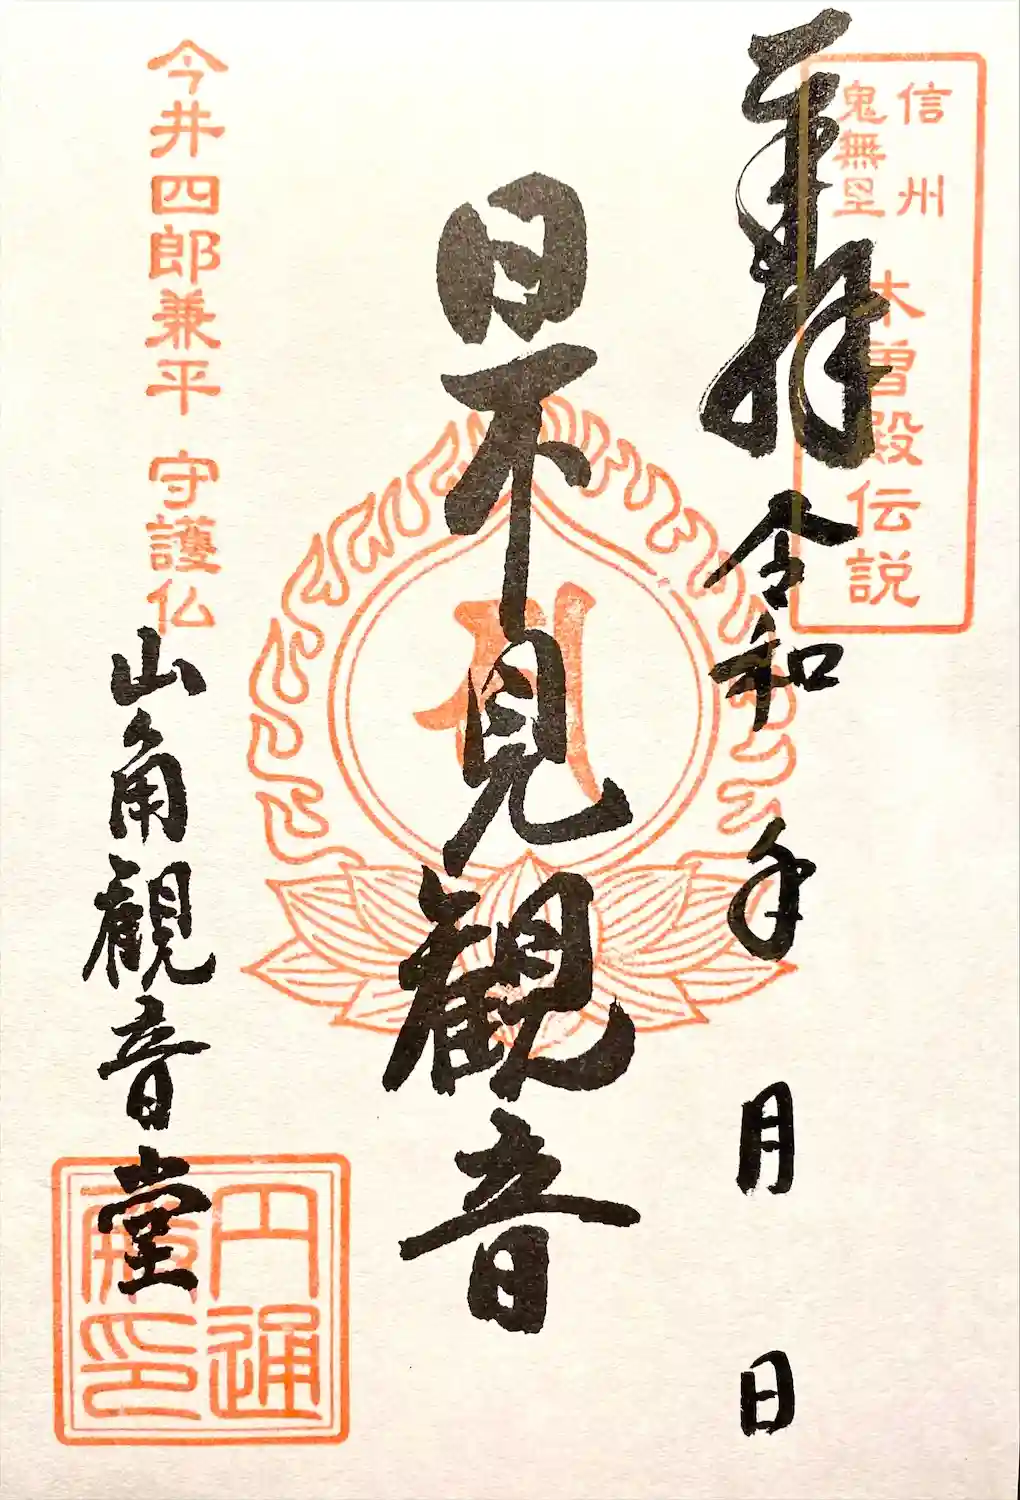 信州
鬼無里
木曽殿伝説
奉拝
令和 年 月 日
日不見観音
今井四郎兼平 守護仏
山角観音堂
円通
殿印